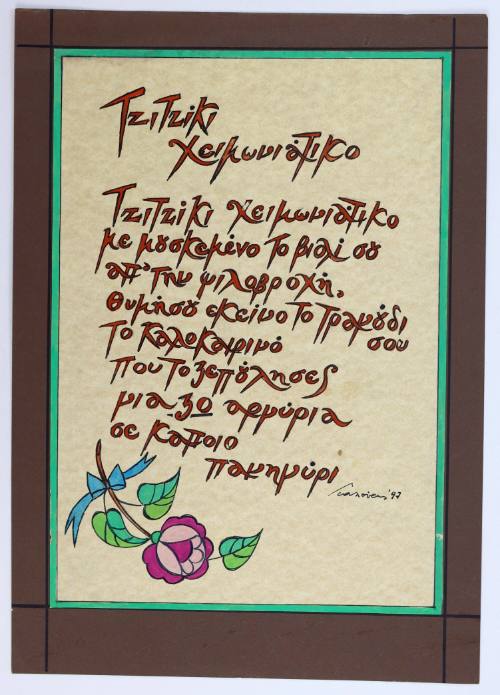 Τζιτζίκι
χειμωνιάτικο
Τζιτζίκι χειμωνιάτικο
με μουσκεμένο το βιολί σου
απ' την ψιλοβροχή,
θυμήσου εκείνο το τραγούδι
το καλοκαιρινό σου
που το ξεπούλησες
για 30 αργύρια
σε κάποιο
πανηγύρι